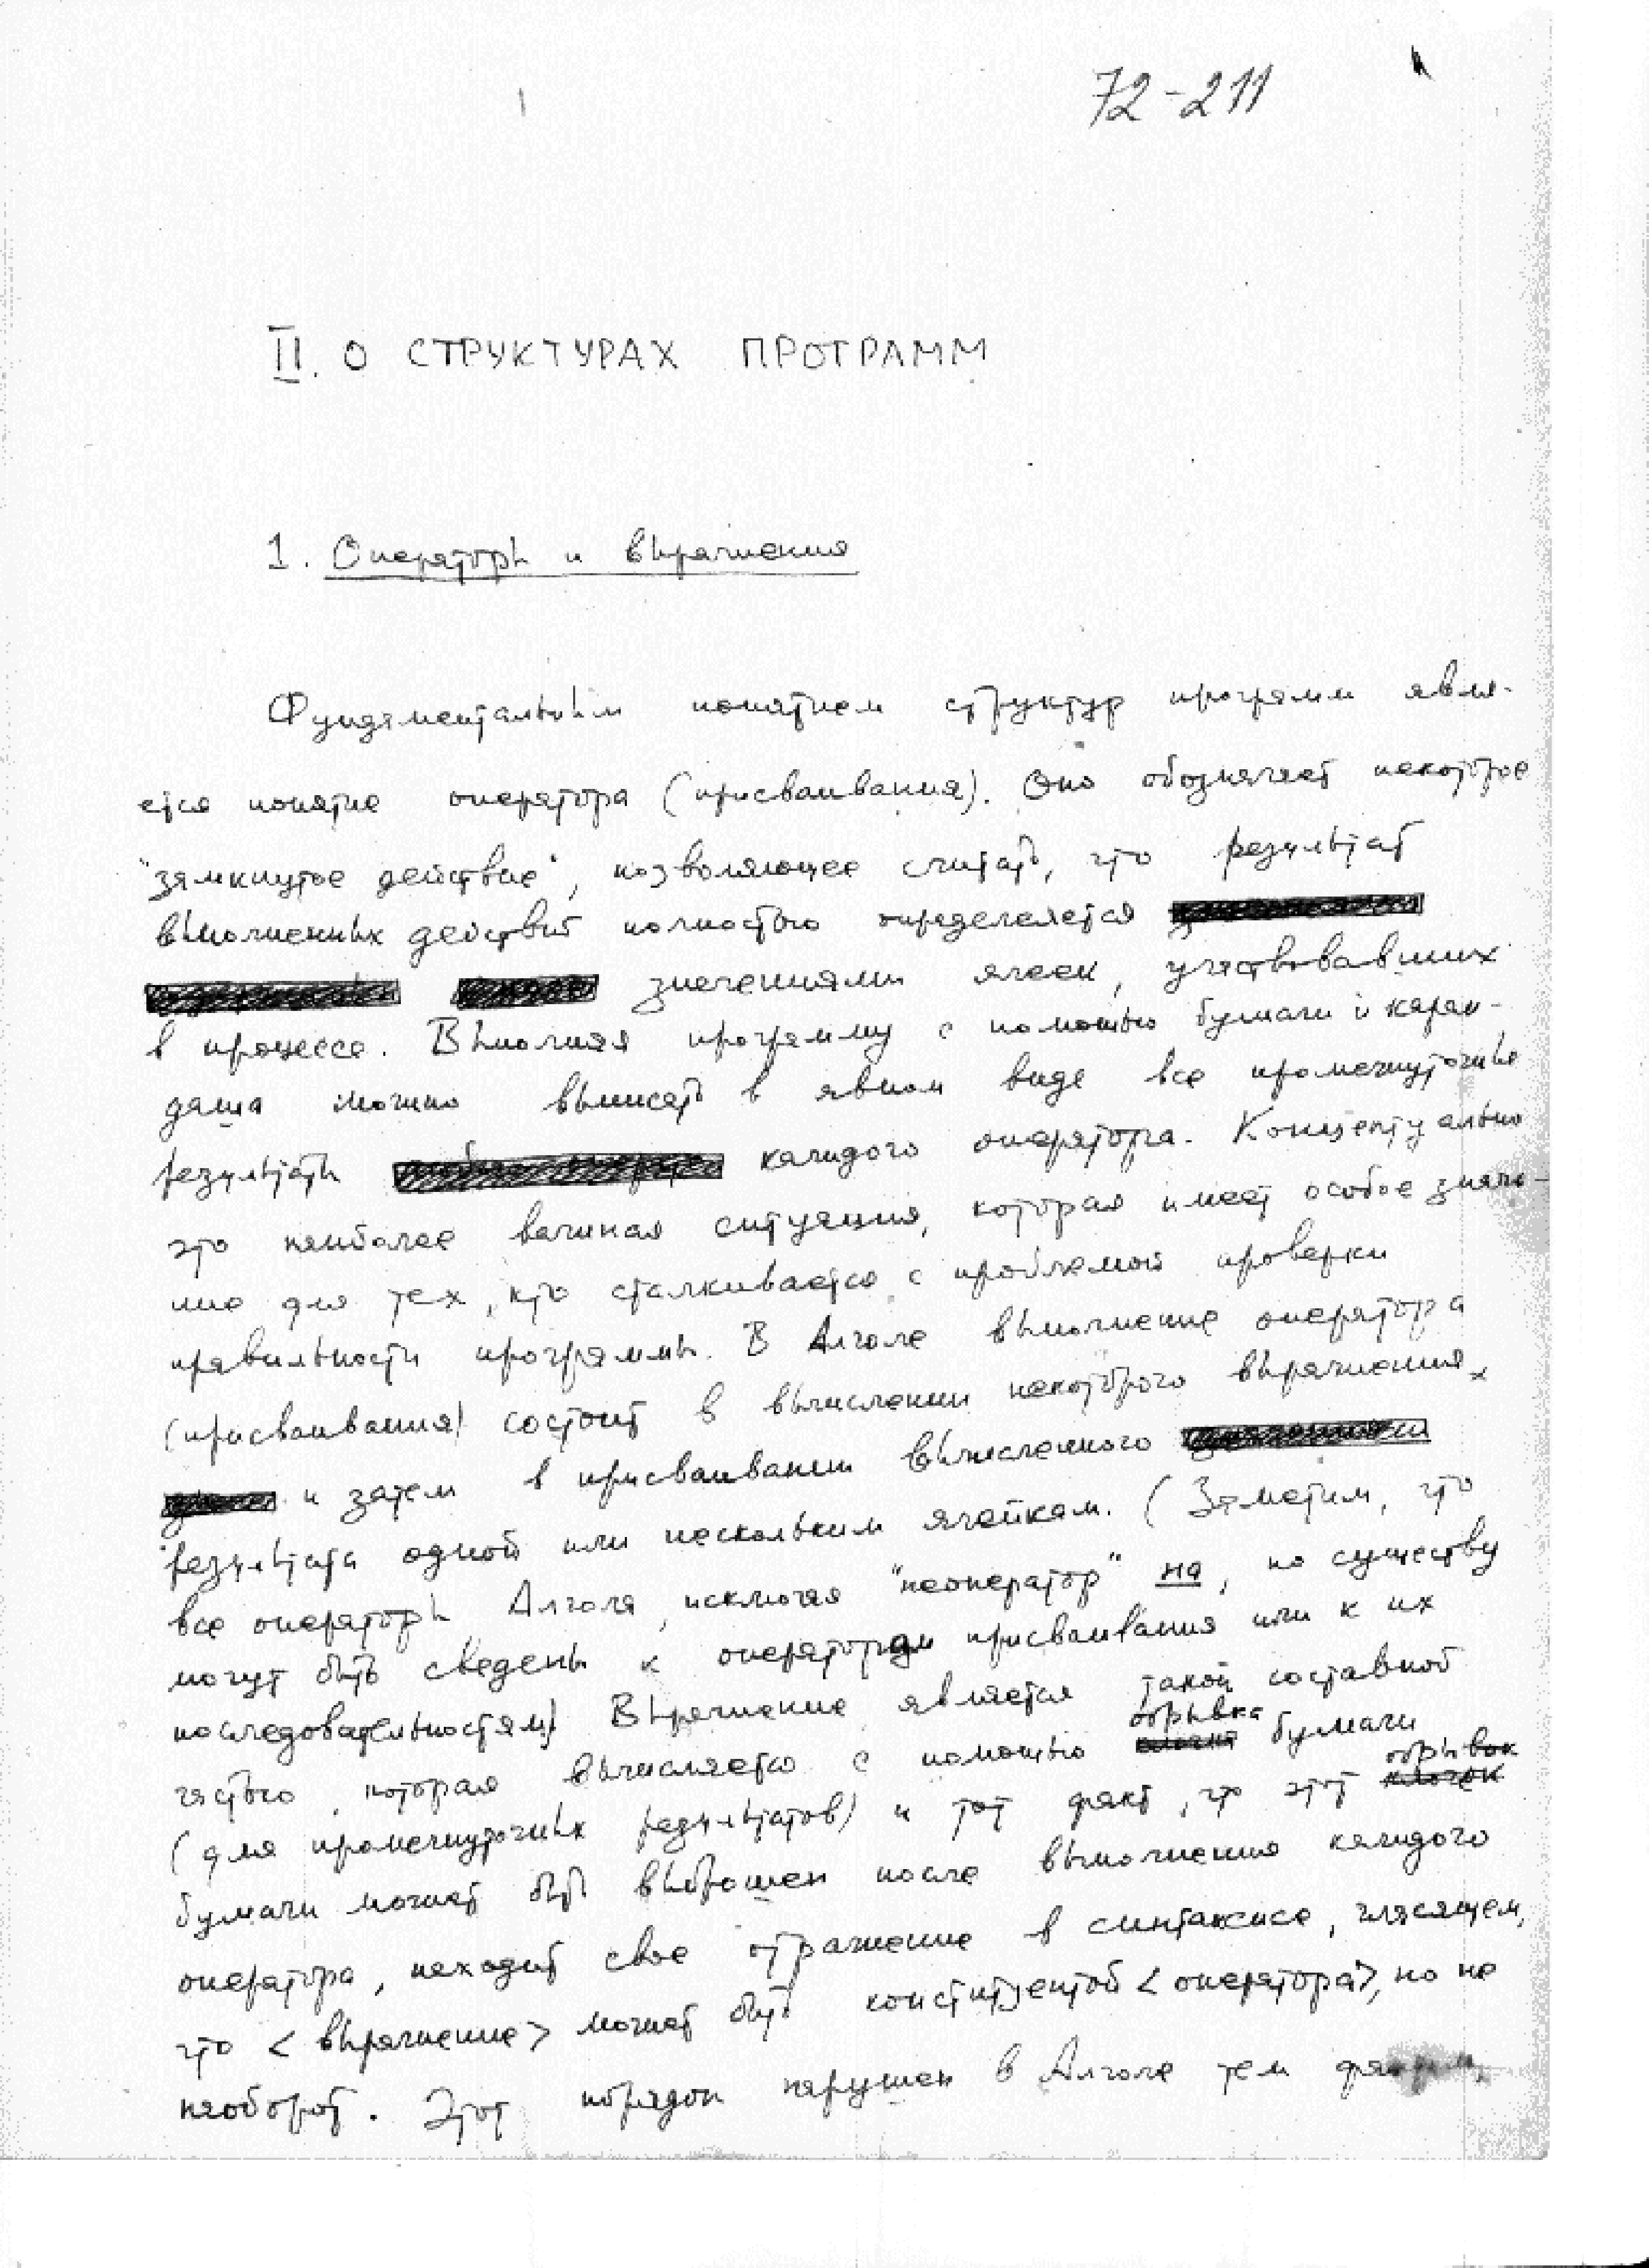 72-211
II. О СТРУКТУРАХ ПРОГРАММ
1. Операторы и выражения
Фундаментальным понятием структур программ явля-
ется понятие оператора (присваивания). Оно обозначает некоторое
"замкнутое действие", позволяющее считать, что результат
выполненных действий полностью определяется
значениями ячеек, участвовавших
в процессе. Выполняя программу с помощью бумаги и каран-
даша можно выписать в явном виде все промежуточные
результаты каждого оператора. Концептуально
это наиболее важная ситуация, которая имеет особое значе-
ние для тех, кто сталкивается с проблемой проверки
правильности программы. В Алголе выполнение оператора
(присваивания) состоит в вычислении некоторого выражения,
и затем в присваивании вычисленного
результата одной или нескольким ячейкам. (Заметим, что
все операторы Алгола, исключая "неоператор" на, по существу
могут быть сведены к операторам присваивания или к их
последовательностям) Выражение является такой составной
частью, которая вычисляется с помощью обрывка бумаги
(для промежуточных результатов) и тот факт, что этот обрывок
бумаги может быть выброшен после выполнения каждого
оператора, находит свое отражение в синтаксисе, гласящем,
что < выражение > может быть конституентой < оператора >, но не
наоборот. Этот порядок нарушен в Алголе тем фактом,